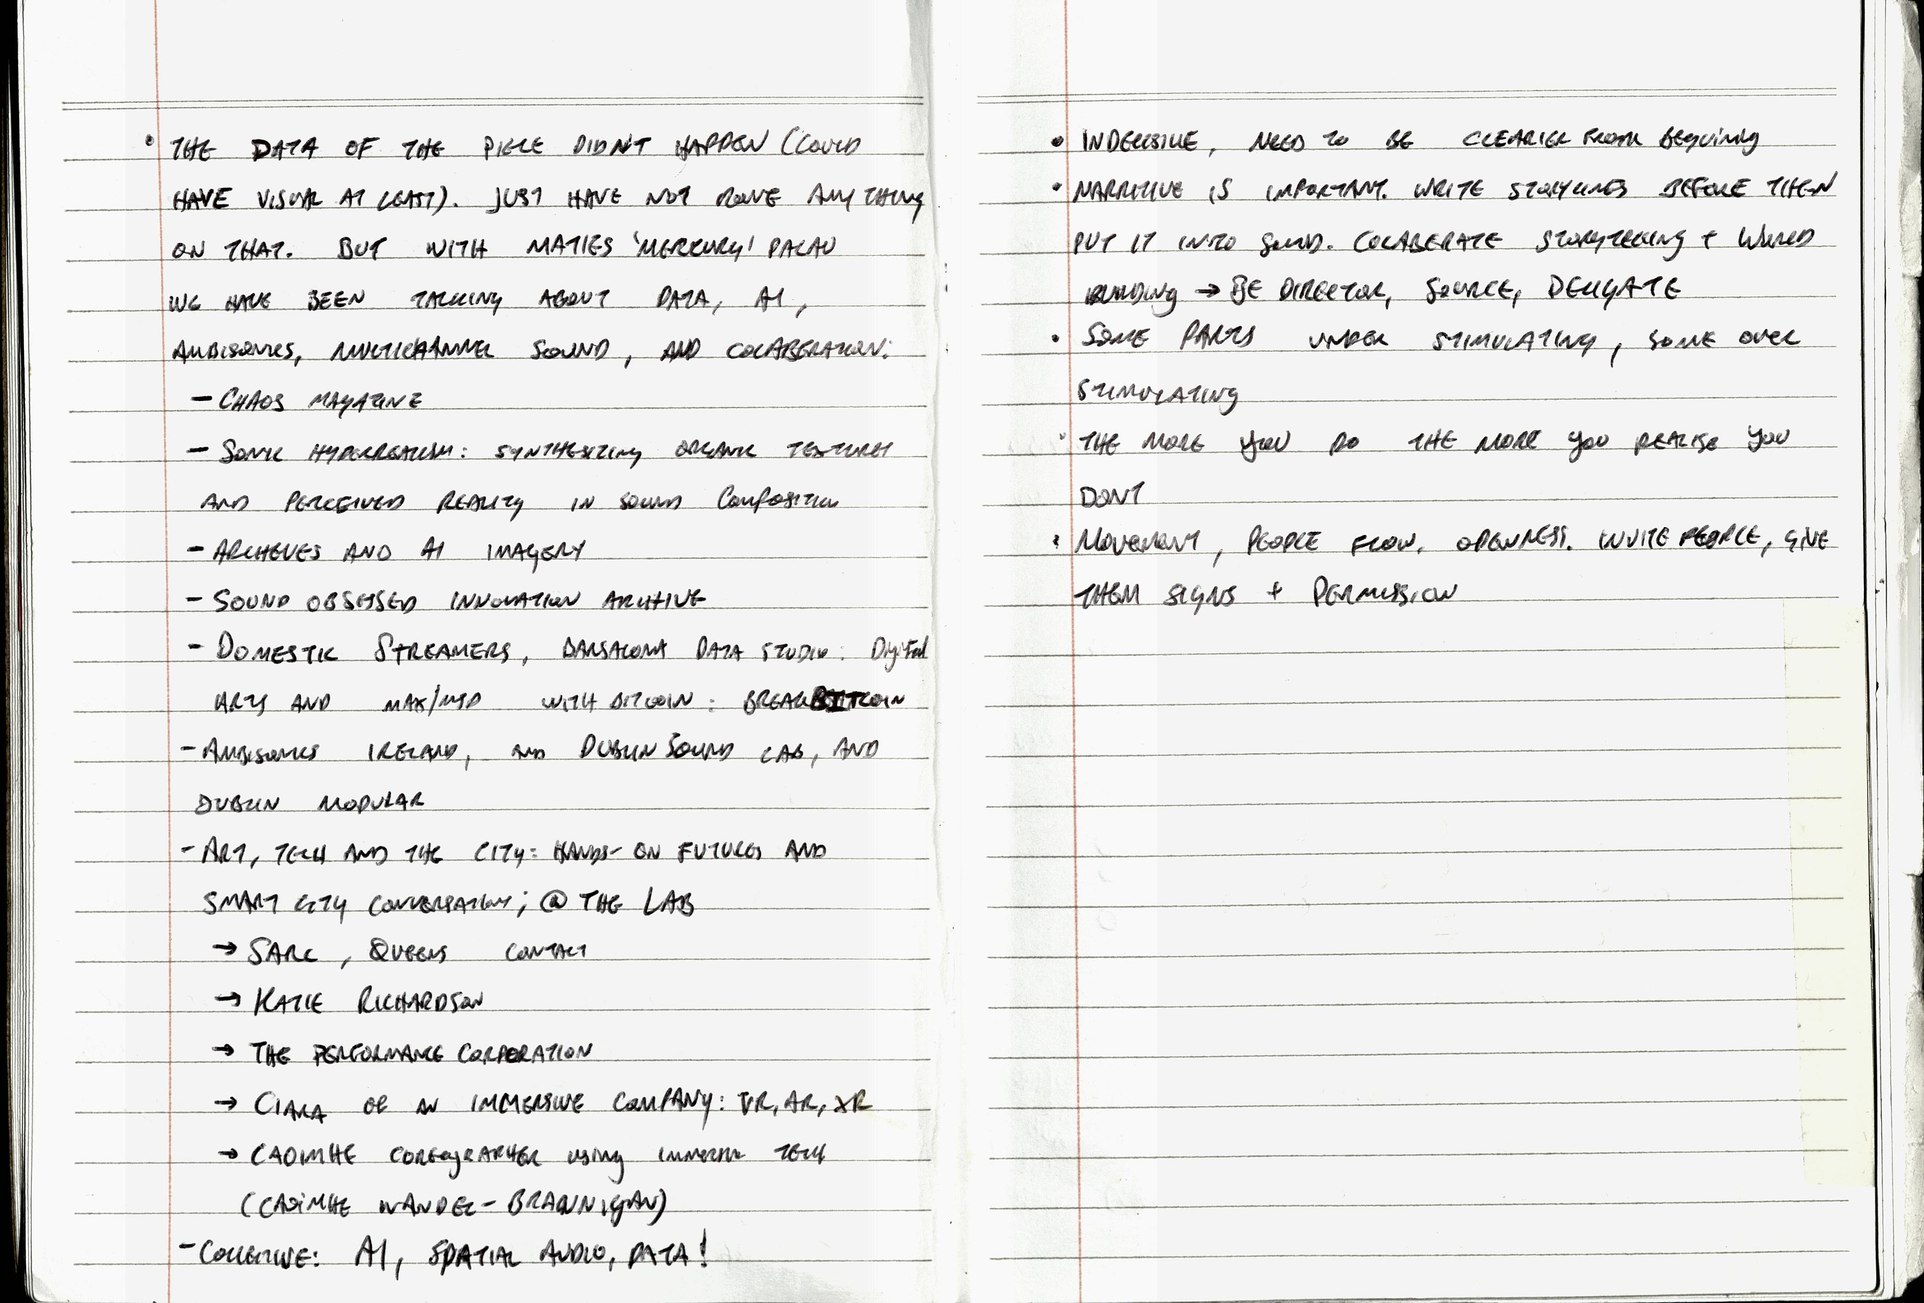 • THE DATA OF THE PIECE DIDN'T HAPPEN (COULD
HAVE VISUAL AT LEAST). JUST HAVE NOT DONE ANYTHING
ON THAT. BUT WITH MATIES 'MERCURY' PALAU
WE HAVE BEEN TALKING ABOUT DATA, AI,
AMBISONICS, MULTICHANNEL SOUND, AND COLABERATION:
– CHAOS MAGAZINE
– SONIC HYPERREALISM: SYNTHESIZING ORGANIC TEXTURES
AND PERCEIVED REALITY IN SOUND COMPOSITION
– ARCHEVES AND AI IMAGERY
– SOUND OBSESSED INNOVATION ARCHIVE
– DOMESTIC STREAMERS, BARSALONA DATA STUDIO: Digital
ARTS AND MAX/MSP WITH BITCOIN: BREAKBITCOIN
– AMBISONICS IRELAND, AND DUBLIN SOUND LAB, AND
DUBLIN MODULAR
– ART, TECH AND THE CITY: HANDS-ON FUTURES AND
SMART CITY CONVERSATION; @ THE LAB
→ SARC, QUEENS CONTACT
→ KATIE RICHARDSON
→ THE PERFORMANCE CORPORATION
→ CIARA OF AN IMMERSIVE COMPANY: VR, AR, XR
→ CAOIMHE COREOGRAPHER USING IMMERSIVE TECH
(CAOIMHE WANDEL-BRANNIGAN)
– COLLECTIVE: AI, SPATIAL AUDIO, DATA!
• INDECISIVE, NEED TO BE CLEARIER FROM BEGUINING
• NARRITIVE IS IMPORTANT. WRITE STORYLINES BEFORE THEN
PUT IT INTO SOUND. COLABERATE STORYTELLING + WORLD
BUILDING → BE DIRECTOR, SOURCE, DELIGATE
• SOME PARTS UNDER STIMULATING, SOME OVER
STIMULATING
• THE MORE YOU DO THE MORE YOU REALISE YOU
DONT
• MOVEMENT, PEOPLE FLOW, OPENNESS. INVITE PEOPLE, GIVE
THEM SIGNS + PERMISSION